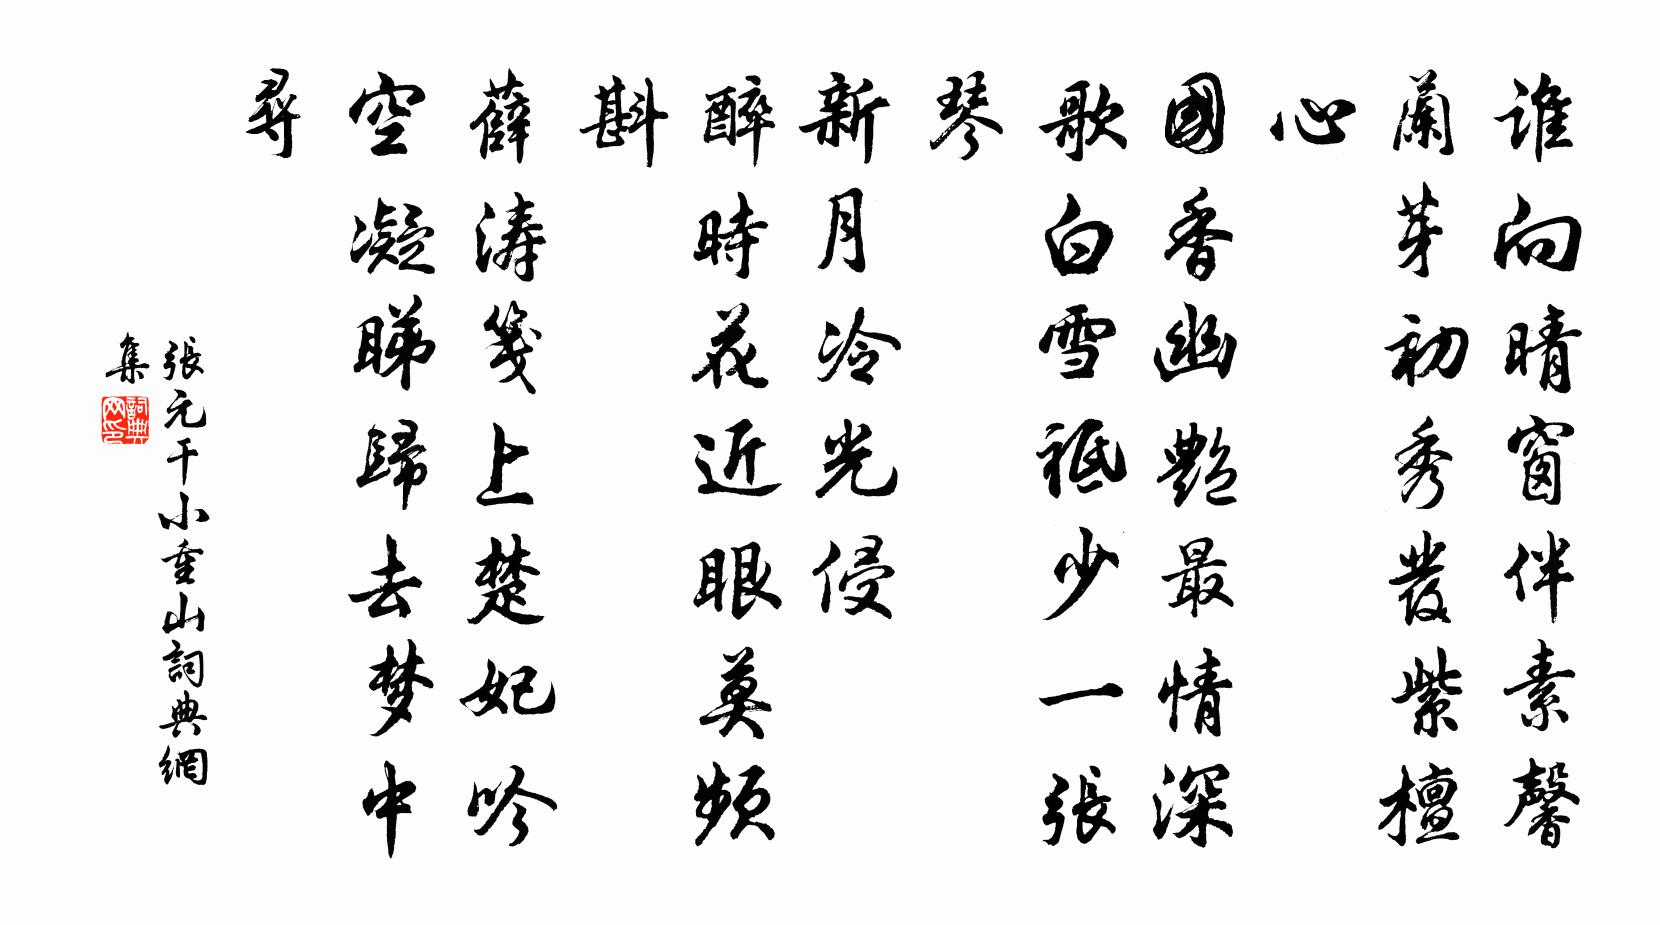 誰向晴窗伴素馨
蘭芽初秀發紫檀
心
國香幽艷最情深
歌白雪祗少一張
琴
新月冷光侵
醉時花近眼莫頻
斟
薛濤箋上楚妃吟
空凝睇歸去梦中
尋
張元干小重山詞典網
集
詞典網印